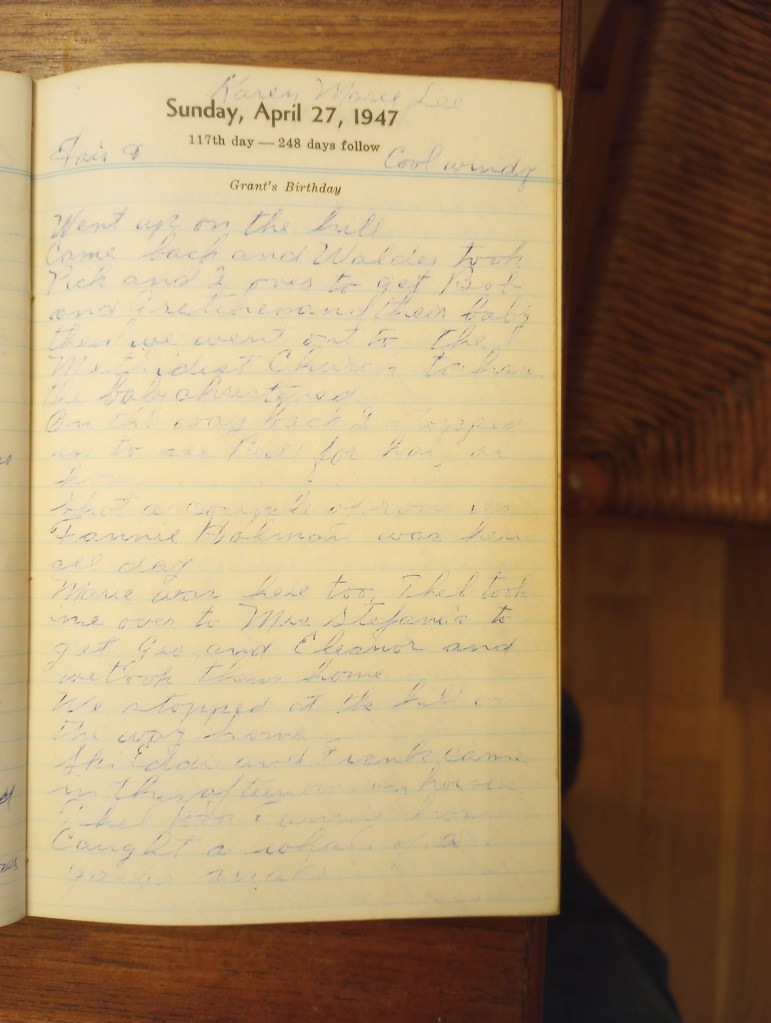 Karen Marie Lee
Sunday, April 27, 1947
117th day — 248 days follow
Fair & Cool windy
Grant's Birthday
Went up on the hill
Came back and Walder took
Dick and I over to get Bob
and Gretchen and their baby
then we went out to the
Methidist Church to have
the baby christened
On the way back I stopped
in to see for half an
hour
Shot a couple of
Fannie Holman was here
all day
Marie was here too, Thel took
me over to Mrs Stefanis to
get Geo and Eleanor and
we took them home
We stopped at the hill on
the way home
and Frank came
in the afternoon on horses
Thel took Fannie home
Caught a whale of a
snake